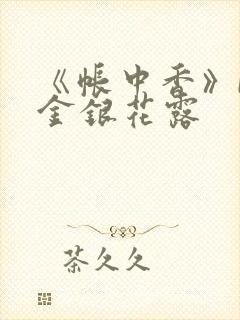 《帐中香》
金银花露
茶久久